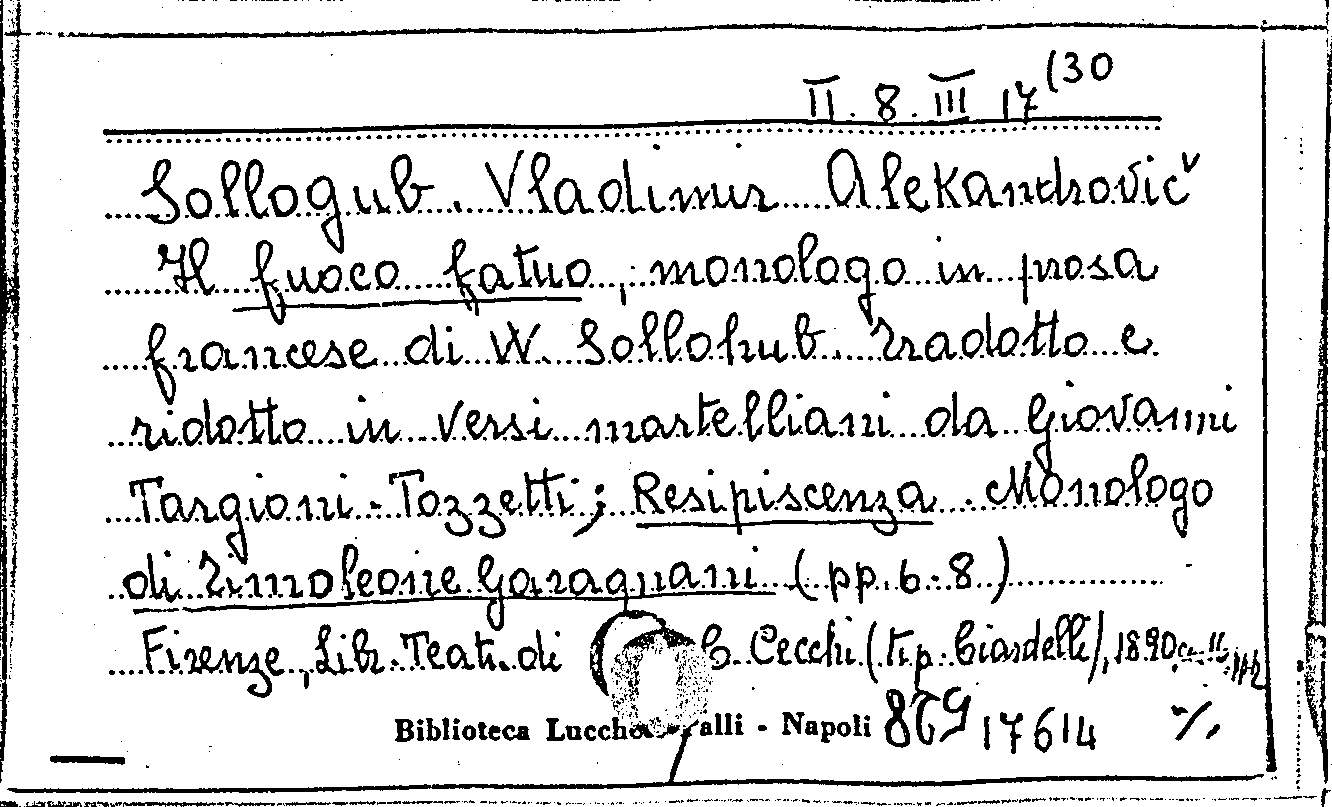 II. 8. III 17 (30
Sollogub. Vladimir Alekandrovič
Il fuoco fatuo, monologo in prosa
francese di W. Sollohub. Tradotto e
ridotto in versi martelliani da Giovanni
Targioni-Tozzetti; Resipiscenza. Monologo
di Timoleone Garagnani (pp. 6-8)
Firenze, Lib. Teat. di C. Cecchi (tip. Ciardelli), 1890
Biblioteca Lucche alli - Napoli 869 17614 %.